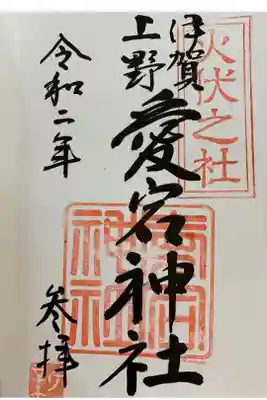 火伏之社
伊賀
上野
愛宕神社
令和二年
参拝
愛宕
神社